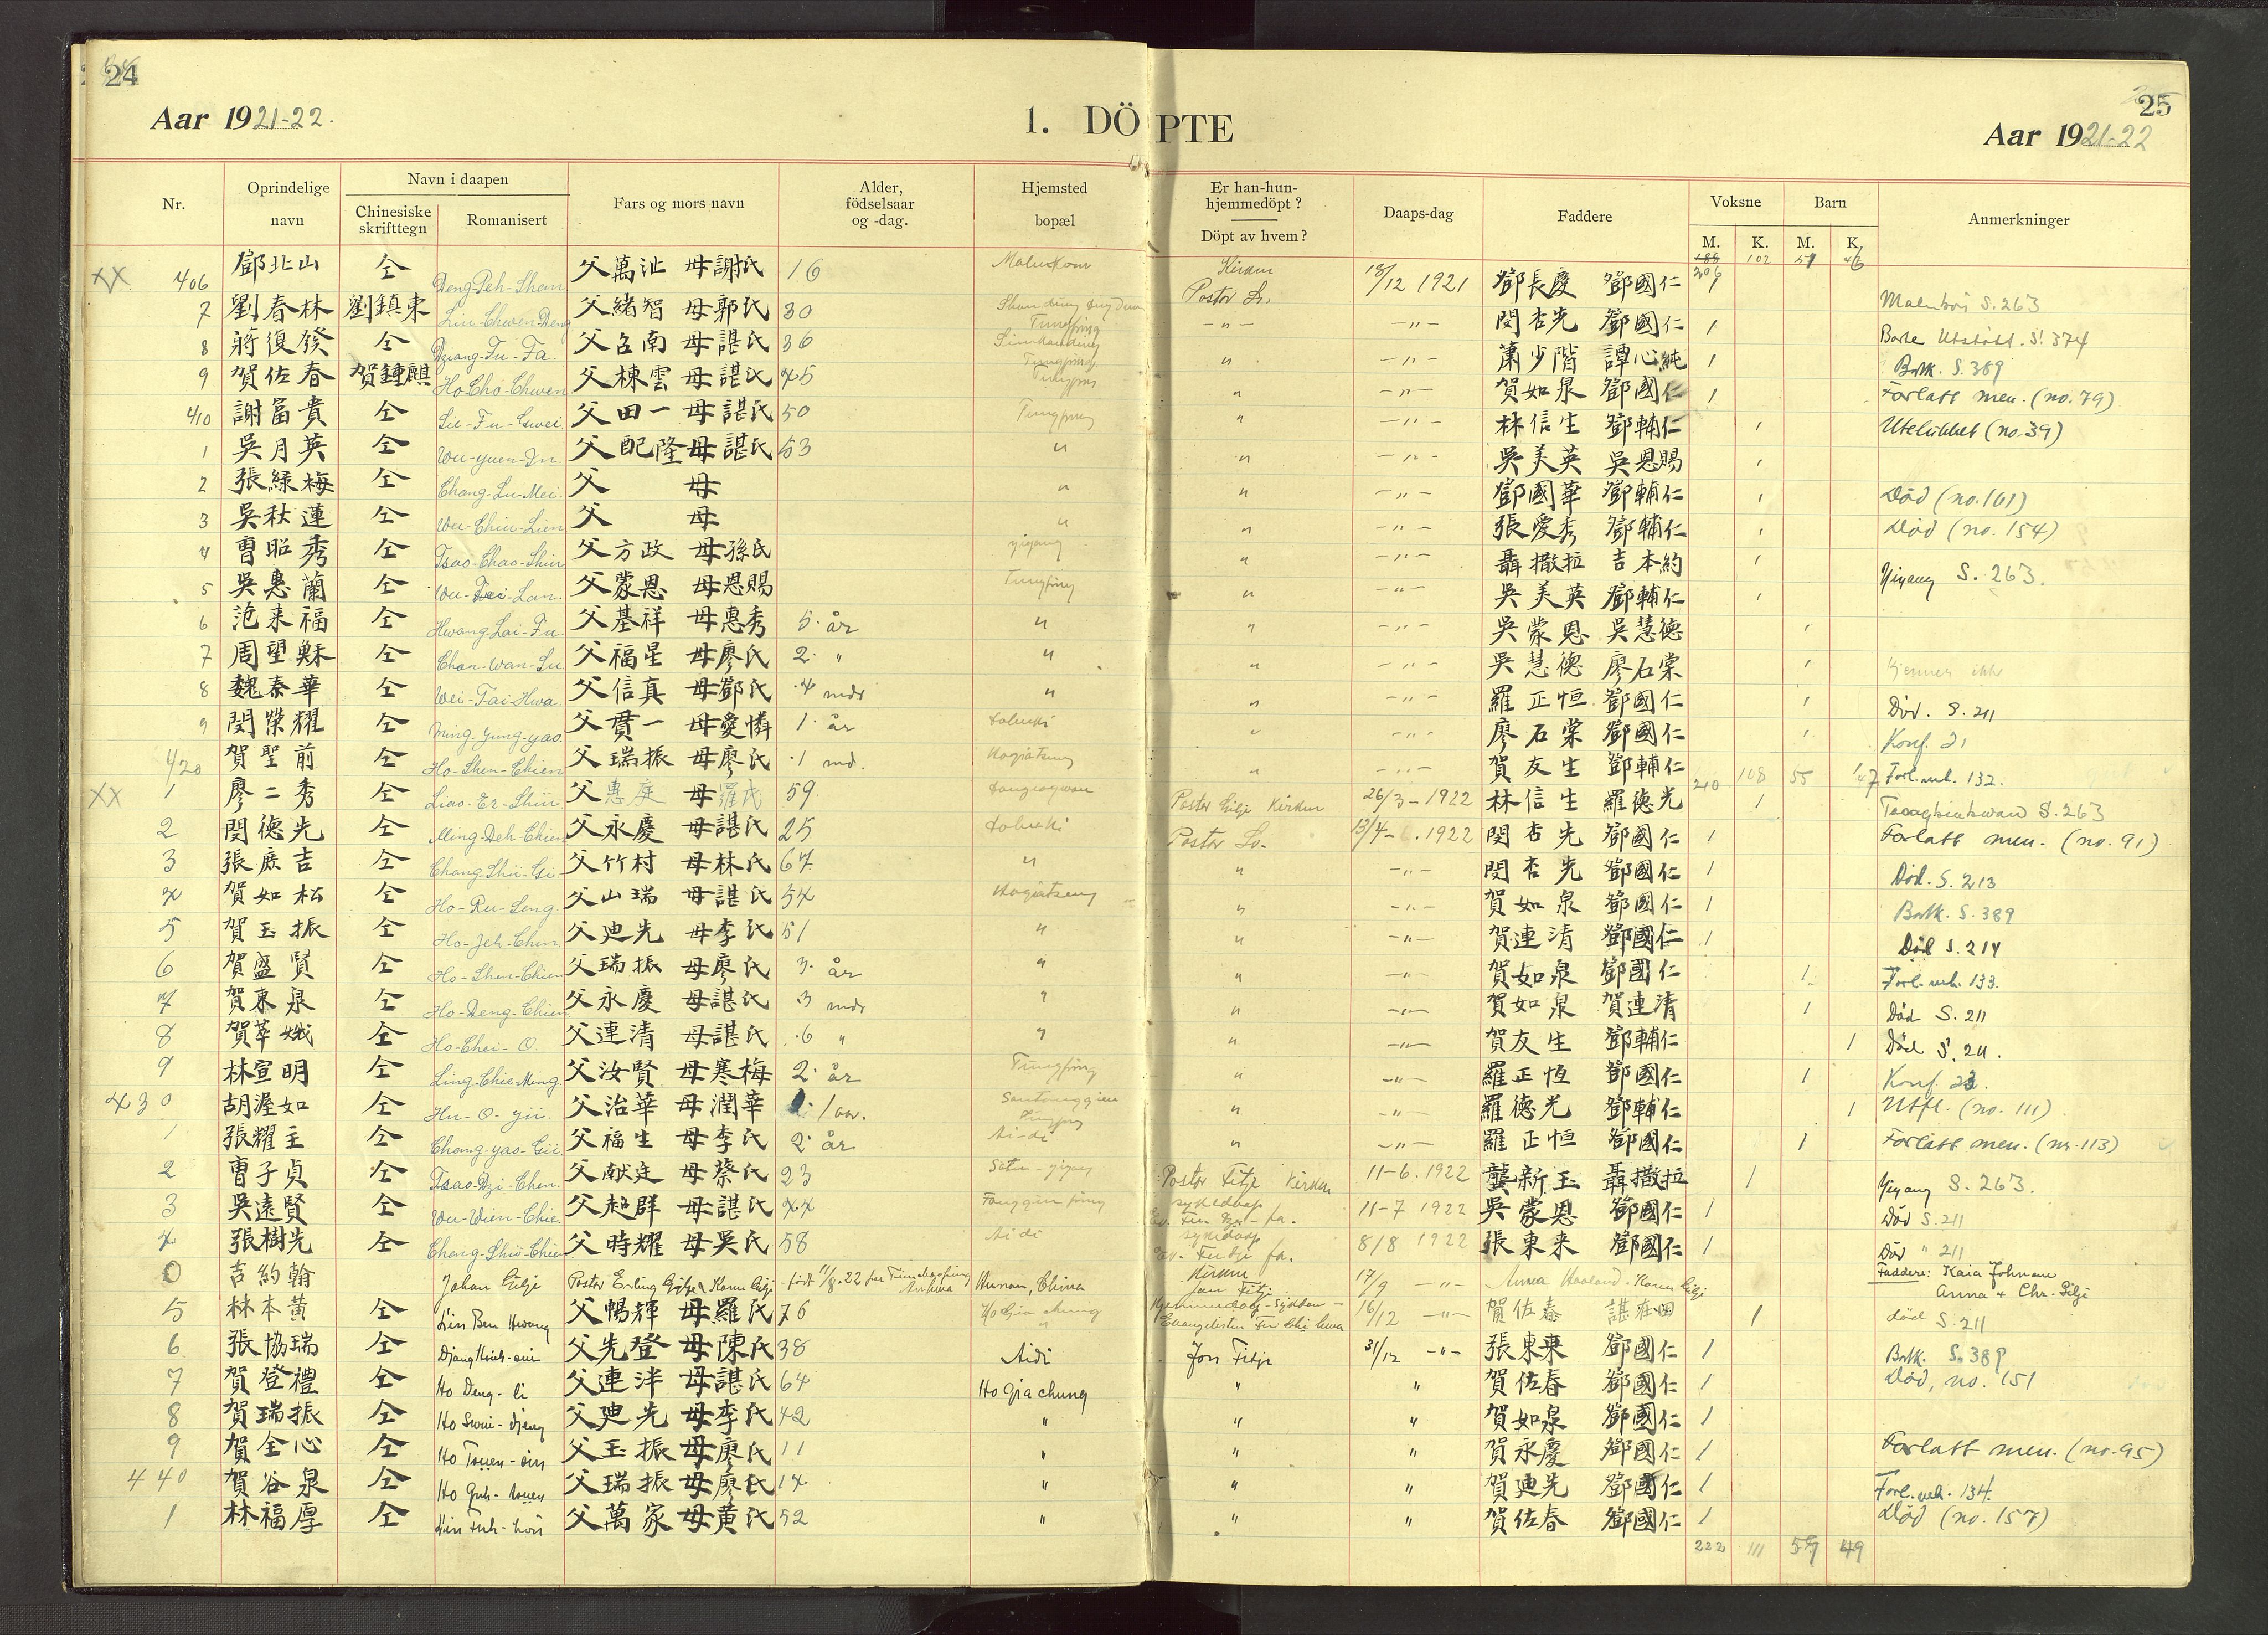 24
25
Aar 1921-22.
1. DÖPTE
Aar 1921-22
Nr.
Oprindelige navn
Navn i daapen
Chinesiske skrifttegn
Romanisert
Fars og mors navn
Alder, födselsaar og -dag.
Hjemsted bopæl
Er han-hun-hjemmedöpt?
Döpt av hvem?
Daaps-dag
Faddere
Voksne
Barn
M. K. M. K.
Anmerkninger
188 102 51 46
XX 406 鄧北山 仝 Deng-Peh-Shan 父萬沚 母謝氏 16 Kirken Pastor Lo. 18/12 1921 鄧長慶 鄧國仁 1
7 劉春林 劉鎮東 Liu-Chwen-Deng 父緒智 母郭氏 30 Tungping -"- -"- 閔杏先 鄧國仁 1 S. 263
8 蔣復發 仝 Dziang-Fu-Fa. 父名南 母諶氏 36 " -"- 蕭少階 譚心純 1 S. 374
9 賀佐春 賀鍾麒 Ho-Cho-Chwen 父棟雲 母諶氏 45 " -"- 賀如泉 鄧國仁 1 Bortk. S. 389
410 謝富貴 仝 Sie-Fu-Gwei. 父田一 母諶氏 50 Tungping " -"- 林信生 鄧輔仁 1 Forlatt men. (no. 79)
1 吳月英 仝 Wu-Yuen-In. 父配隆 母諶氏 53 " " -"- 吳美英 吳恩賜 1 Utelukket (no. 39)
2 張綠梅 仝 Chang-Lu-Mei. 父 母 " " -"- 鄧國華 鄧輔仁 1 Död (no. 161)
3 吳秋蓮 仝 Wu-Chiu-Lien 父 母 " " -"- 張愛秀 鄧輔仁 1 Död (no. 154)
4 曹昭秀 仝 Tsao-Chao-Shiu 父方政 母孫氏 Yiyang " -"- 聶撒拉 吉本約 1 Yiyang S. 263.
5 吳惠蘭 仝 Wu-Fei-Lan. 父蒙恩 母恩賜 Tungping " -"- 吳美英 鄧輔仁 1
6 范来福 仝 Hwang-Lai-Fu. 父基祥 母惠秀 5. år " " -"- 吳蒙恩 吳慧德 1
7 周望穌 仝 Chau-Wan-Su. 父福星 母廖氏 2. " " " -"- 吳慧德 廖石棠 1 Kjenner ikke
8 魏泰華 仝 Wei-Tai-Hwa. 父信真 母鄧氏 4 mdr " " -"- 羅正恒 鄧國仁 1 Död. S. 211
9 閔榮耀 仝 Ming-Yung-Yao. 父貫一 母愛憐 1. år " -"- 廖石棠 鄧國仁 1 Konf. 21
420 賀聖前 仝 Ho-Shen-Chien 父瑞振 母廖氏 1 md. Hogiatseng " -"- 賀友生 鄧輔仁 Forl. 132.
210 108 55 47
XX 1 廖二秀 仝 Liao-Er-Shiu 父惠庭 母羅氏 59. Pastor Gilje Kirken 26/3-1922 林信生 羅德光 1 S. 263
2 閔德先 仝 Ming-Deh-Chien 父永慶 母諶氏 25 Pastor Lo. 13/4-1922 閔杏先 鄧國仁 1 Forlatt men. (no. 91)
3 張庶吉 仝 Chang-Shü-Gi. 父竹村 母林氏 67. " " -"- 閔杏先 鄧國仁 1 Död. S. 213
4 賀如松 仝 Ho-Ru-Seng. 父山瑞 母諶氏 54 Hogiatseng " -"- 賀如泉 鄧國仁 1 Bortk. S. 389
5 賀玉振 仝 Ho-Jeh-Chen. 父廸先 母李氏 51 " " -"- 賀連清 鄧國仁 1 Död S. 214
6 賀盛賢 仝 Ho-Shen-Chien 父瑞振 母廖氏 3. år " " -"- 賀如泉 鄧國仁 1 Forl. 133.
7 賀東泉 仝 Ho-Deng-Chien 父永慶 母諶氏 3 mdr " " -"- 賀如泉 賀連清 1 Död S. 211
8 賀萃娥 仝 Ho-Chei-O. 父連清 母諶氏 6 " " " -"- 賀友生 鄧輔仁 1 Död S. 211.
9 林宣明 仝 Ling-Chie-Ming. 父汝賢 母寒梅 2. år Tungping " -"- 羅正恒 鄧國仁 1 Konf. 22.
430 胡渥如 仝 Hu-O-Yü. 父治華 母潤華 1 aar. " -"- 羅德光 鄧輔仁 1 Utfl. (no. 111)
1 張耀主 仝 Chang-Yao-Gü. 父福生 母李氏 2. år Ai-di " -"- 羅正恒 鄧國仁 1 Forlatt men. (nr. 113)
2 曹子貞 仝 Tsao-Dzi-Chen. 父献廷 母蔡氏 23 Pastor Fitje Kirken 11-6.1922 龔新玉 聶撒拉 1 Yiyang S. 263.
3 吳遠賢 仝 Wu-Wien-Chien 父超群 母諶氏 44 sykedaap 11-7 1922 吳蒙恩 鄧國仁 1 Död S. 211
4 張樹先 仝 Chang-Shü-Chien 父時耀 母吳氏 58 Ai di sykedaap 8/8 1922 張東来 鄧國仁 1 Död " 211
0 吉約翰 Johan Gilje Pastor Erling Gilje & Karen Gilje född 11/8.22 Hunan, China Kirken Jon Fitje 17/9 -"- Anna Haaland Karen Gilje Faddere: Kaia Johnsen Anna & Chr. Gilje
5 林本黄 仝 Lin Ben Hwang 父暢輝 母羅氏 76 16/12 -"- 賀佐春 諶在田 1 död S. 211
6 張協瑞 仝 Djang Hsieh-sui 父先登 母陳氏 38 Aidi Jon Fitje 31/12 -"- 張東来 鄧國仁 1 Bortk. S. 389
7 賀登禮 仝 Ho Deng-li 父連泮 母諶氏 64 Ho Gia chung " " 賀佐春 鄧國仁 1 Död, no. 151
8 賀瑞振 仝 Ho Swui-djeng 父廸先 母李氏 42 " " " 賀如泉 鄧國仁 1
9 賀全心 仝 Ho Tsuen-sin 父玉振 母廖氏 11 " " " 賀永慶 鄧國仁 1 Forlatt men. (nr. 95)
440 賀谷泉 仝 Ho Guh-tsuen 父瑞振 母廖氏 14 " " " 賀廸先 鄧國仁 1 Forl. 134.
1 林福厚 仝 Lin Fuh-hou 父萬家 母黄氏 52 " " " 賀佐春 鄧國仁 1 Död (no. 157)
222 111 59 49